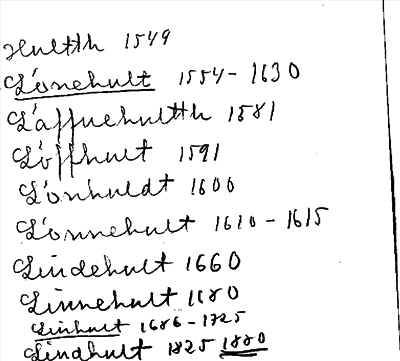 Hultth 1549
Lönehult 1554-1630
Läffuehultth 1581
Löffhult 1591
Lönhuldt 1600
Lönnehult 1610-1615
Lindehult 1660
Linnehult 1680
Linhult 1686-1725
Lindhult 1825 1880